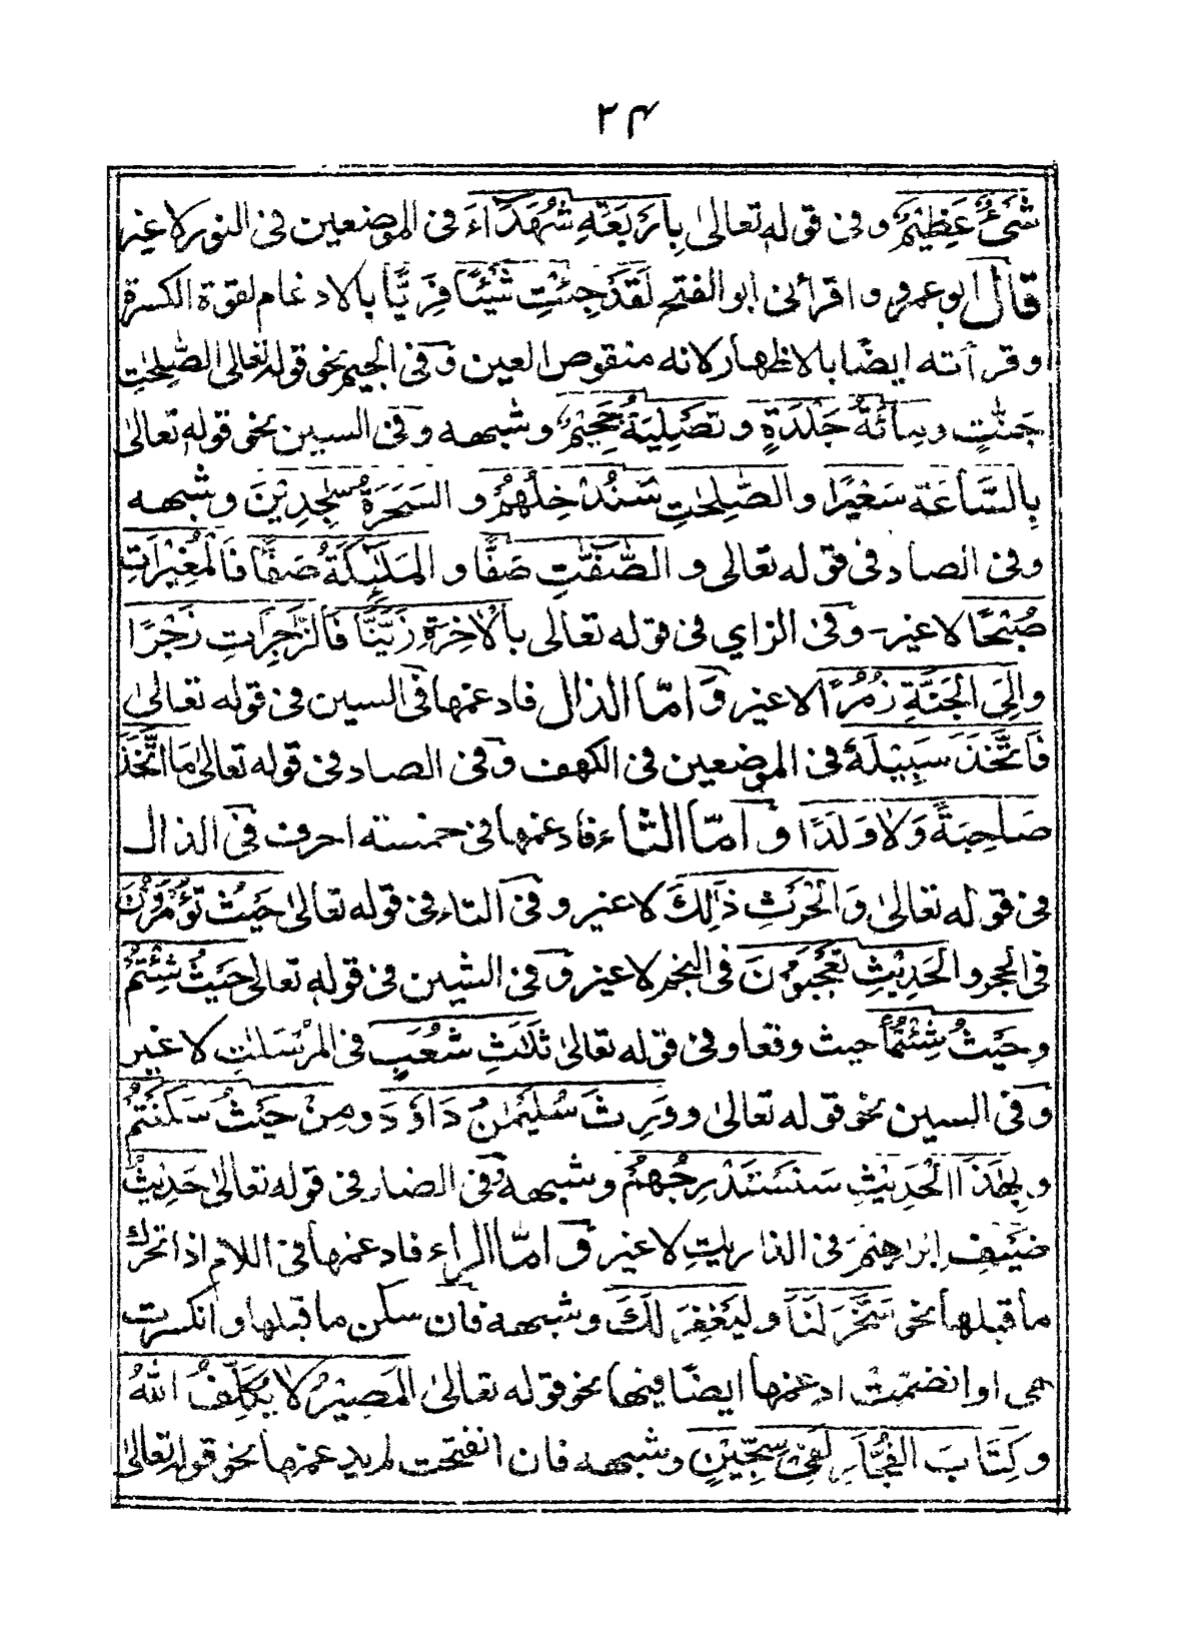 ٢٤
شَىْءٌ عَظِيْمٌ وفى قوله تعالىٰ بِاَرْبَعَةِ شُهَدَآءَ فى الموضعين فى النور لا غير
قال ابو عمرو واقرأنى ابو الفتح لَقَدْ جِئْتِ شَيْئًا فَرِيًّا بالادغام لقوة الكسرة
وقرأته ايضًا بالاظهار لانه منقوص العين وفى الجيم نحو قوله تعالى الصّٰلِحٰتِ
جَنّٰتٍ ومِائَةَ جَلْدَةٍ وتَصْلِيَةُ جَحِيْمٍ وشبهه وفى السين نحو قوله تعالىٰ
بِالسَّاعَةِ سَعِيْرًا والصّٰلِحٰتِ سَنُدْخِلُهُمْ والسَحَرَةُ سٰجِدِيْنَ وشبهه
وفى الصاد فى قوله تعالى والصّٰٓفّٰتِ صَفًّا والمَلٰٓئِكَةُ صَفًّا فَالْمُغِيْرَاتِ
صُبْحًا لا غير وفى الزاي فى قوله تعالى بِالْاٰخِرَةِ زَيَّنَّا فَالزّٰجِرَاتِ زَجْرًا
والِىَ الْجَنَّةِ زُمَرًا لا غير وَامّا الذال فادغمها فى السين فى قوله تعالىٰ
فَاتَّخَذَ سَبِيْلَهٗ فى الموضعين فى الكهف وفى الصاد فى قوله تعالىٰ مَا اتَّخَذَ
صَاحِبَةً وَلَا وَلَدًا وَامّا الثاء فادغمها فى خمسته احرف فى الذال
فى قوله تعالىٰ وَالْحَرْثِ ذٰلِكَ لا غير وفى التاء فى قوله تعالىٰ حَيْثُ تُؤْمَرُوْنَ
فى الحجر والحَدِيْثِ تَعْجَبُوْنَ فى النجم لا غير وفى الشين فى قوله تعالى حَيْثُ شِئْتُمْ
وحَيْثُ شِئْتُمَا حيث وقعا وفى قوله تعالىٰ ثَلٰثِ شُعَبٍ فى المُرْسَلٰتِ لا غير
وفى السين نحو قوله تعالىٰ ووَرِثَ سُلَيْمٰنُ دَاوٗدَ ومِنْ حَيْثُ سَكَنْتُمْ
وبِهٰذَا الْحَدِيْثِ سَنَسْتَدْرِجُهُمْ وشبهه وفى الضاد فى قوله تعالىٰ حَدِيْثُ
ضَيْفِ اِبْرٰهِيْمَ فى الذاريٰتِ لا غير وَامّا الراء فادغمها فى اللام اذا تحرك
ما قبلها نحو سَخَّرَ لَنَا ولِيَغْفِرَ لَكَ وشبهه فان سكن ما قبلها وانكسرت
هى او انضمّت ادغمها ايضًا فيها نحو قوله تعالىٰ المَصِيْرُ لَا يُكَلِّفُ اللّٰهُ
وكِتَابَ الفُجَّارِ لَفِىْ سِجِّيْنٍ وشبهه فان انفتحت لم يدغمها نحو قوله تعالىٰ